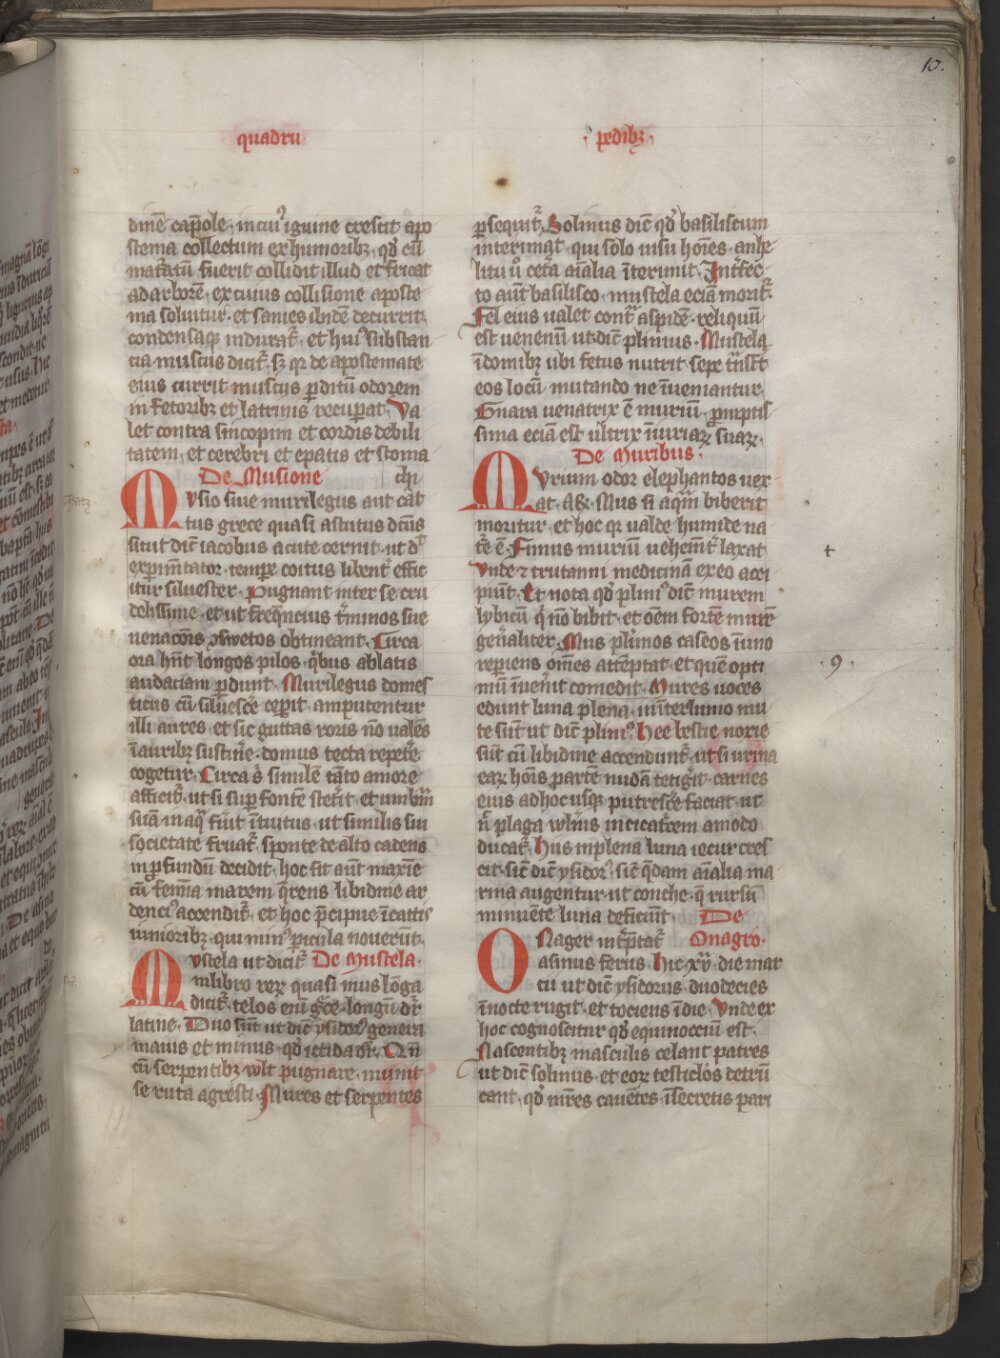 10.
quadru
pedibꝫ
dinē cap̄ole · in cuiꝰ iguine crescit apo
stema collectum ex humoribꝫ · qd̕ cū
mat᷑atū fuerit collidit illud et fricat
ad arborē · ex cuius collisione aposte
ma soluitur · et sanies ibidē decurrit
condensaqꝫ indurat᷑ · et huiꝰ substan
cia muscus dicit᷑ · sꝫ qꝛ de apostemate
eius currit muscus ꝑditū odorem
in fetoribꝫ et latrinis recuꝑat · Va
let contra sincopim et cordis debili
tatem · et cerebri et epatis et stoma
De Musione chi ·
Mvsio siue murilegus aut cat
tus grece quasi astutus dc̄us
sicut dic̄ iacobus acute cernit · ut d̕
exꝑim̄tator · tempe coitus libent᷑ effic
itur siluester · Pugnant inter se cru
delissime · et ut freq̄ncius t᷑minos sue
uenacōis ꝯswetos obtineant · Circa
ora hn̄t longos pilos · q̕bus ablatis
audaciam ꝑdunt · Murilegus domes
ticus cū siluesc̄e ceꝑit · amputentur
illi aures · et sic guttas roris nō ualēs
ī auribꝫ sustin̄e · domus tecta repet̄e
cogetur · Circa s̄ similē tāto amore
afficit᷑ · ut si suꝑ fontē stet᷑it · et umbrā
suā in aq̄ fūit ītuitus · ut similis sui
societate fruat᷑ · sponte de alto cadens
in ꝓfundū decidit · hoc fit aūt maxīe
cū fem̄ia marem q̄rens libidine ar
denciꝰ accendit᷑ · et hoc p̄cipue ī cattis
iunioribꝫ · qui minꝰ ꝑicula nouerūt ·
Mvstela ut dicit᷑ De Mustela ·
in libro reꝝ quasi mus lōga
dicit᷑ · telos eni̅ gc̄e · longū dr̄
latine · Duo sūt ut dic̄ ysidorꝰ genera
maius et minus · qd̕ ictida dr̄ · Qn̄
cū serpentibꝫ wlt pugnare · munit
se ruta agresti · Mures et serpentes
ꝑsequit᷑ · Solinus dic̄ qd̕ basiliscum
interimat · qui solo uisu hoīes · anhe
litu ū̕ cet᷑a aīalia īterimit · Int᷑fec
to aūt basilisco · mustela eciā morit᷑
Fel eius ualet cont᷑ aspidē · reliquū
est uenenū ut dic̄ plinius · Mustela
ī domibꝫ ubi fetus nutrit sepe t᷑nsf᷑t
eos locū mutando ne īueniantur
Gnara uenatrix ē muriū · ꝓmptis
sima eciā est ultrix īiuriaꝝ suaꝝ ·
De Muribus ·
Mvrium odor elephantos uex
at · A&· Mus si aquā biberit
moritur · et hoc qꝛ ualde humide na
t᷑e ē · Fimus muriū uehem̄t᷑ laxat
Vnde ⁊ trutanni medicinā ex eo acci
piūt · Et nota qd̕ pliniꝰ dic̄ murem
lybicū q̕ nō bibit · et oēm fortē mure
gen̄aliter · Mus pl̕imos caseos ī uno
reꝑiens om̄es attēptat · et quē opti
mū īuen̄it comedit · Mures uoces
edunt luna plena · in interlunio mu
te sūt ut dic̄ pliniꝰ · Hee bestie noxie
sūt cū libidine accendunt᷑ · ut si urina
eaꝝ hoīs partē nudā tetig᷑it · carnes
eius adhoc usqꝫ putresc̄e faciat · ut
n̄ plaga wln̄is in cicatricem amodo
ducat᷑ · Hus in plena luna iecur cres
cit · sic̄ dic̄ ysidorꝰ · sic̄ q̄dam aīalia ma
rina augentur · ut conche · q̄ rursū
minuēte luna deficiūt · De
Onager int᷑ptat᷑ Onagro ·
asinus ferus · Hic xxv̄ die mar
cii ut dic̄ ysidorus · duodecies
ī nocte rugit · et tociens ī die · Vnde ex
hoc cognoscitur qd̕ equinoccīū est ·
Nascentibꝫ masculis celant patres
ut dic̄ solinus · et eoꝝ testiclōs detrū
cant · qd̕ mr̄es cauentes · ī secretis pari
+
· 9 ·